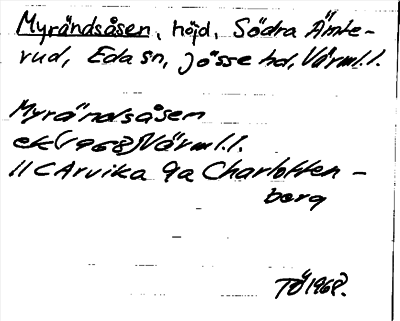 Myrändsåsen, höjd, Södra Ämte-
rud, Eda sn, Jösse hd, Värml.l.
Myrändsåsen
ek(1968)Värml.l.
11C Arvika 9a Charlotten-
berg
TÖ 1968.